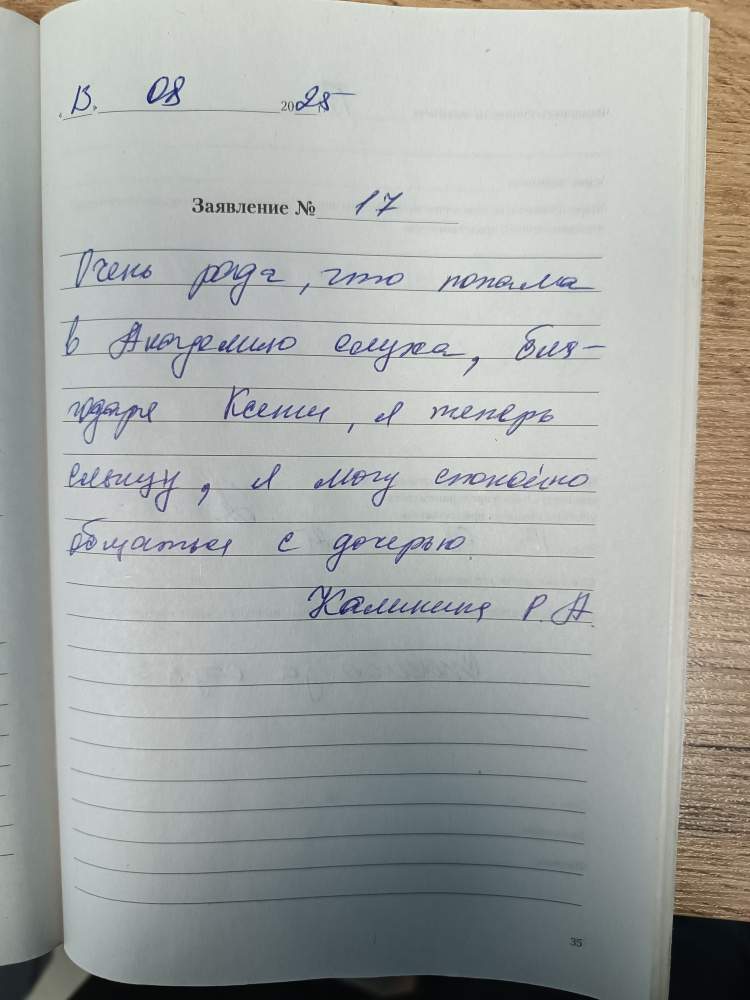 «13» 08 2025
Заявление № 17
Очень рада, что попала
в Академию слуха, бла-
годаря Ксении, я теперь
слышу, я могу спокойно
общаться с дочерью
Калинина Р. А.
35